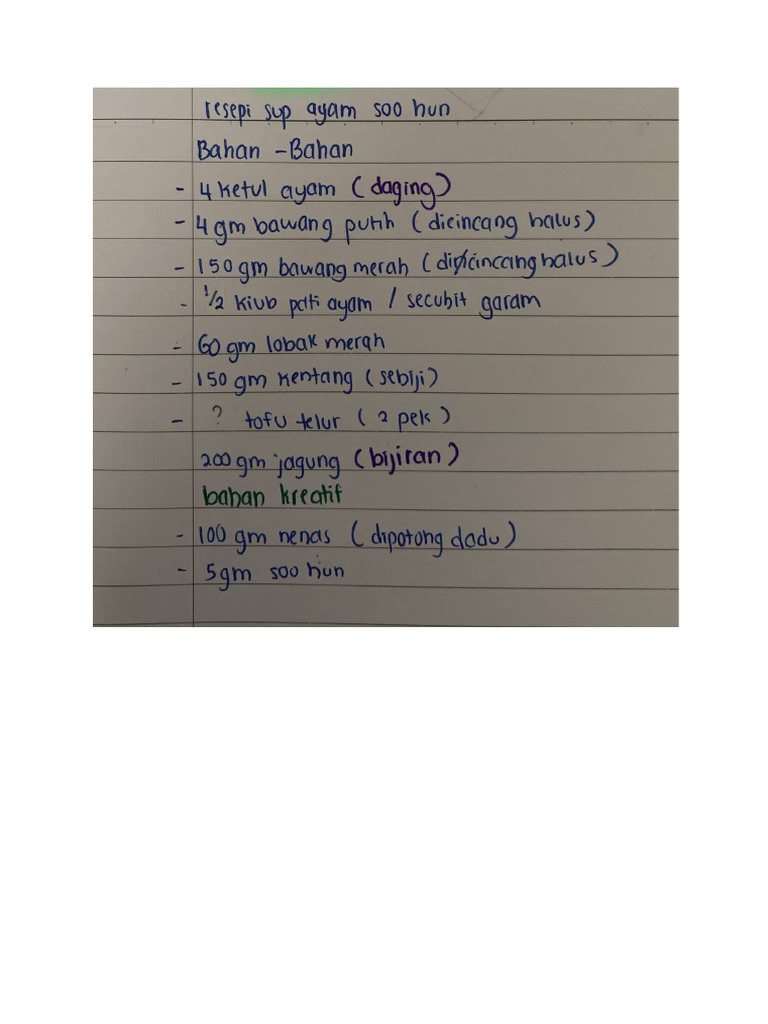 resepi sup ayam soo hun
Bahan - Bahan
- 4 ketul ayam (daging)
- 4 gm bawang putih (dicincang halus)
- 150 gm bawang merah (dicincang halus)
- 1/2 kiub pati ayam / secubit garam
- 60 gm lobak merah
- 150 gm kentang (sebiji)
- ? tofu telur (2 pek)
200 gm jagung (bijiran)
bahan kreatif
- 100 gm nenas (dipotong dadu)
- 5gm soo hun